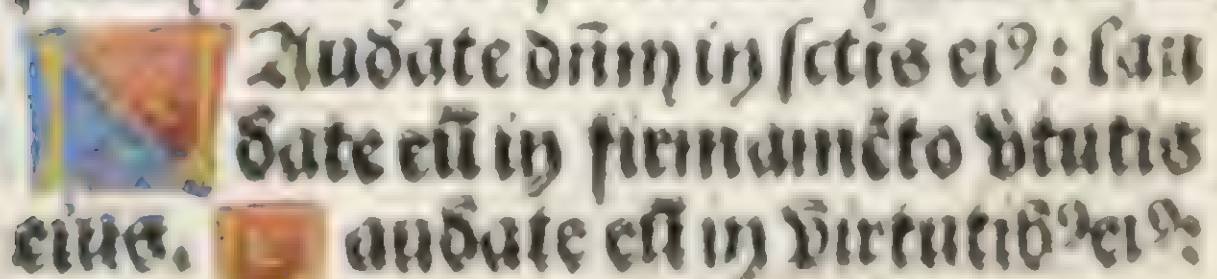 Laudate dñm in sctis eiꝰ: lau
date eū in firmamēto v̾tutis
eius. Laudate eū in virtutibꝰ eiꝰ: